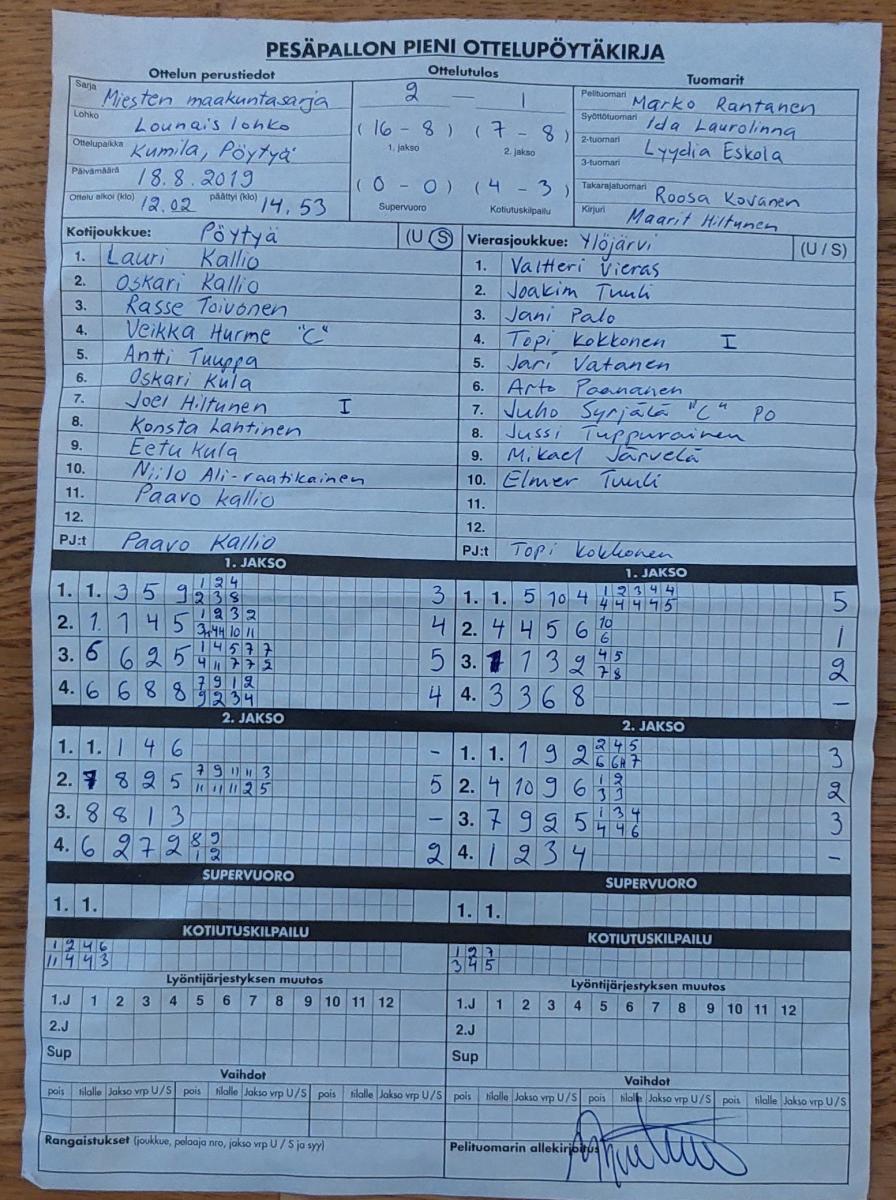 PESÄPALLON PIENI OTTELUPÖYTÄKIRJA
Ottelun perustiedot
Sarja Miesten maakuntasarja
Lohko Lounaislohko
Ottelupaikka Kumila, Pöytyä
Päivämäärä 18.8.2019
Ottelu alkoi (klo) 12.02 päättyi (klo) 14.53
Ottelutulos
2 — 1
(16 - 8) (7 - 8)
1. jakso 2. jakso
(0 - 0) (4 - 3)
Supervuoro Kotiutuskilpailu
Tuomarit
Pelituomari Marko Rantanen
Syöttötuomari Ida Laurolinna
2-tuomari Lyydia Eskola
3-tuomari
Takarajatuomari Roosa Kovanen
Kirjuri Maarit Hiltunen
Kotijoukkue: Pöytyä (U/S)
1. Lauri Kallio
2. Oskari Kallio
3. Rasse Toivonen
4. Veikka Hurme "C"
5. Antti Tuuppa
6. Oskari Kula
7. Joel Hiltunen I
8. Konsta Lahtinen
9. Eetu Kula
10. Niilo Ali-raatikainen
11. Paavo Kallio
12.
PJ:t Paavo Kallio
Vierasjoukkue: Ylöjärvi (U/S)
1. Valtteri Vieras
2. Joakim Tuuli
3. Jani Palo
4. Topi Kokkonen I
5. Jari Vatanen
6. Arto Paananen
7. Juho Syrjälä "C" PO
8. Jussi Tuppurainen
9. Mikael Järvelä
10. Elmer Tuuli
11.
12.
PJ:t Topi Kokkonen
1. JAKSO
1. 1. 3 5 9 1 2 4 3
2 3 8
2. 1 1 4 5 1 2 3 2 4
3H 4H 10 11
3. 6 6 2 5 1 4 5 7 7 5
4 11 7 7 2
4. 6 6 8 8 7 9 1 2 4
9 2 3 4
1. JAKSO
1. 1. 5 10 4 1 2 3 4 4 5
4 4 4 4 5
2. 4 4 5 6 10 1
6
3. 1 1 3 2 4 5 2
7 8
4. 3 3 6 8 -
2. JAKSO
1. 1. 1 4 6 -
2. 7 8 2 5 7 9 11 11 3 5
11 11 11 2 5
3. 8 8 1 3 -
4. 6 2 7 2 8 9 2
1 2
2. JAKSO
1. 1. 1 9 2 2 4 5 3
6 6H 7
2. 4 10 9 6 1 2 2
3 3
3. 7 9 2 5 1 3 4 3
4 4 6
4. 1 2 3 4 -
SUPERVUORO
1. 1.
SUPERVUORO
1. 1.
KOTIUTUSKILPAILU
1 2 4 6
11 4 4 3
KOTIUTUSKILPAILU
1 2 7
3 4 5
Lyöntijärjestyksen muutos
1.J 1 2 3 4 5 6 7 8 9 10 11 12
2.J
Sup
Lyöntijärjestyksen muutos
1.J 1 2 3 4 5 6 7 8 9 10 11 12
2.J
Sup
Vaihdot
pois tilalle Jakso vrp U/S pois tilalle Jakso vrp U/S pois tilalle Jakso vrp U/S
Vaihdot
pois tilalle Jakso vrp U/S pois tilalle Jakso vrp U/S pois tilalle Jakso vrp U/S
Rangaistukset (joukkue, pelaaja nro, jakso vrp U / S ja syy)
Pelituomarin allekirjoitus